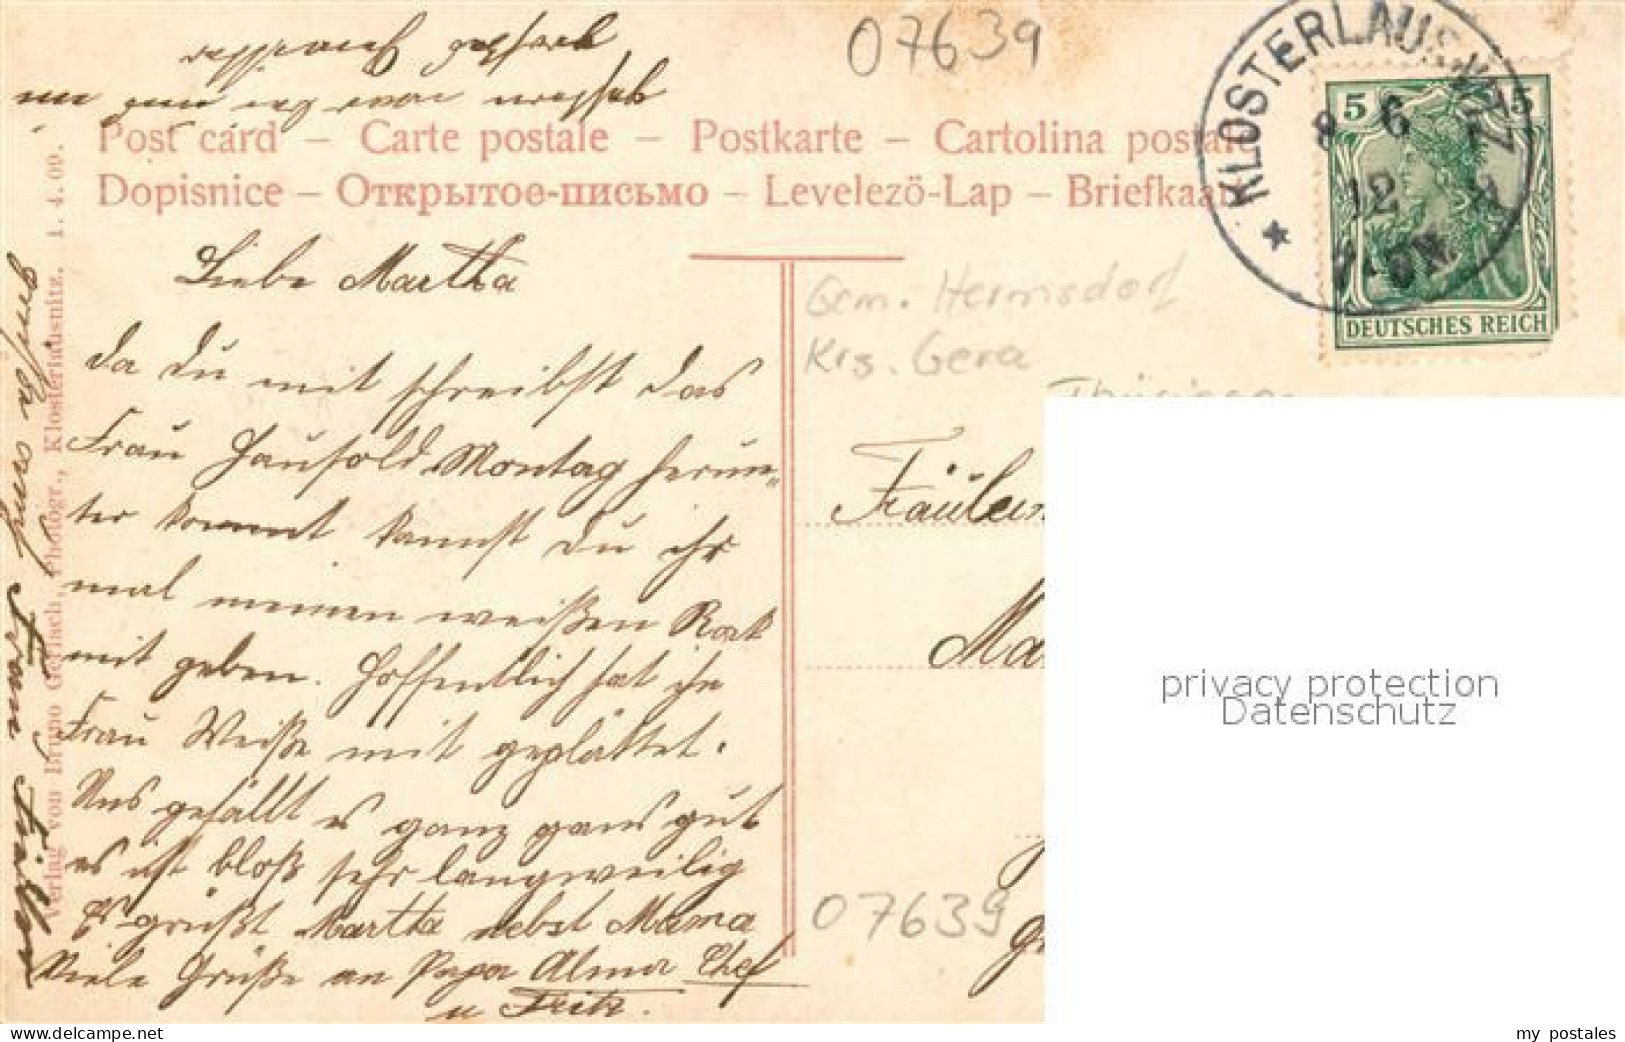 07639
Post card – Carte postale – Postkarte – Cartolina postale
Dopisnice – Открытое-письмо – Levelező-Lap – Briefkaart
KLOSTERLAUSNITZ
8 6
12
5 5
DEUTSCHES REICH
Gem. Hermsdorf
Krs. Gera
Thüringen
Liebe Martha
da du mit schreibst das
Frau Haufold Montag herun-
ter kommt kannst du ihr
mal meinen weißen Rock
mit geben. Hoffentlich hat ihn
Frau Weiße mit geplättet.
Uns gefällt es ganz gut
es ist bloß sehr langweilig
Es grüßt Martha nebst Mama
Viele Grüße an Papa Alma Chef
u Fritz.
Verlag von Bruno Gerlach, Photogr., Klosterlausnitz. 1. 4. 09.
Fräulein
Ma
07639
privacy protection
Datenschutz
www.delcampe.net
my postales